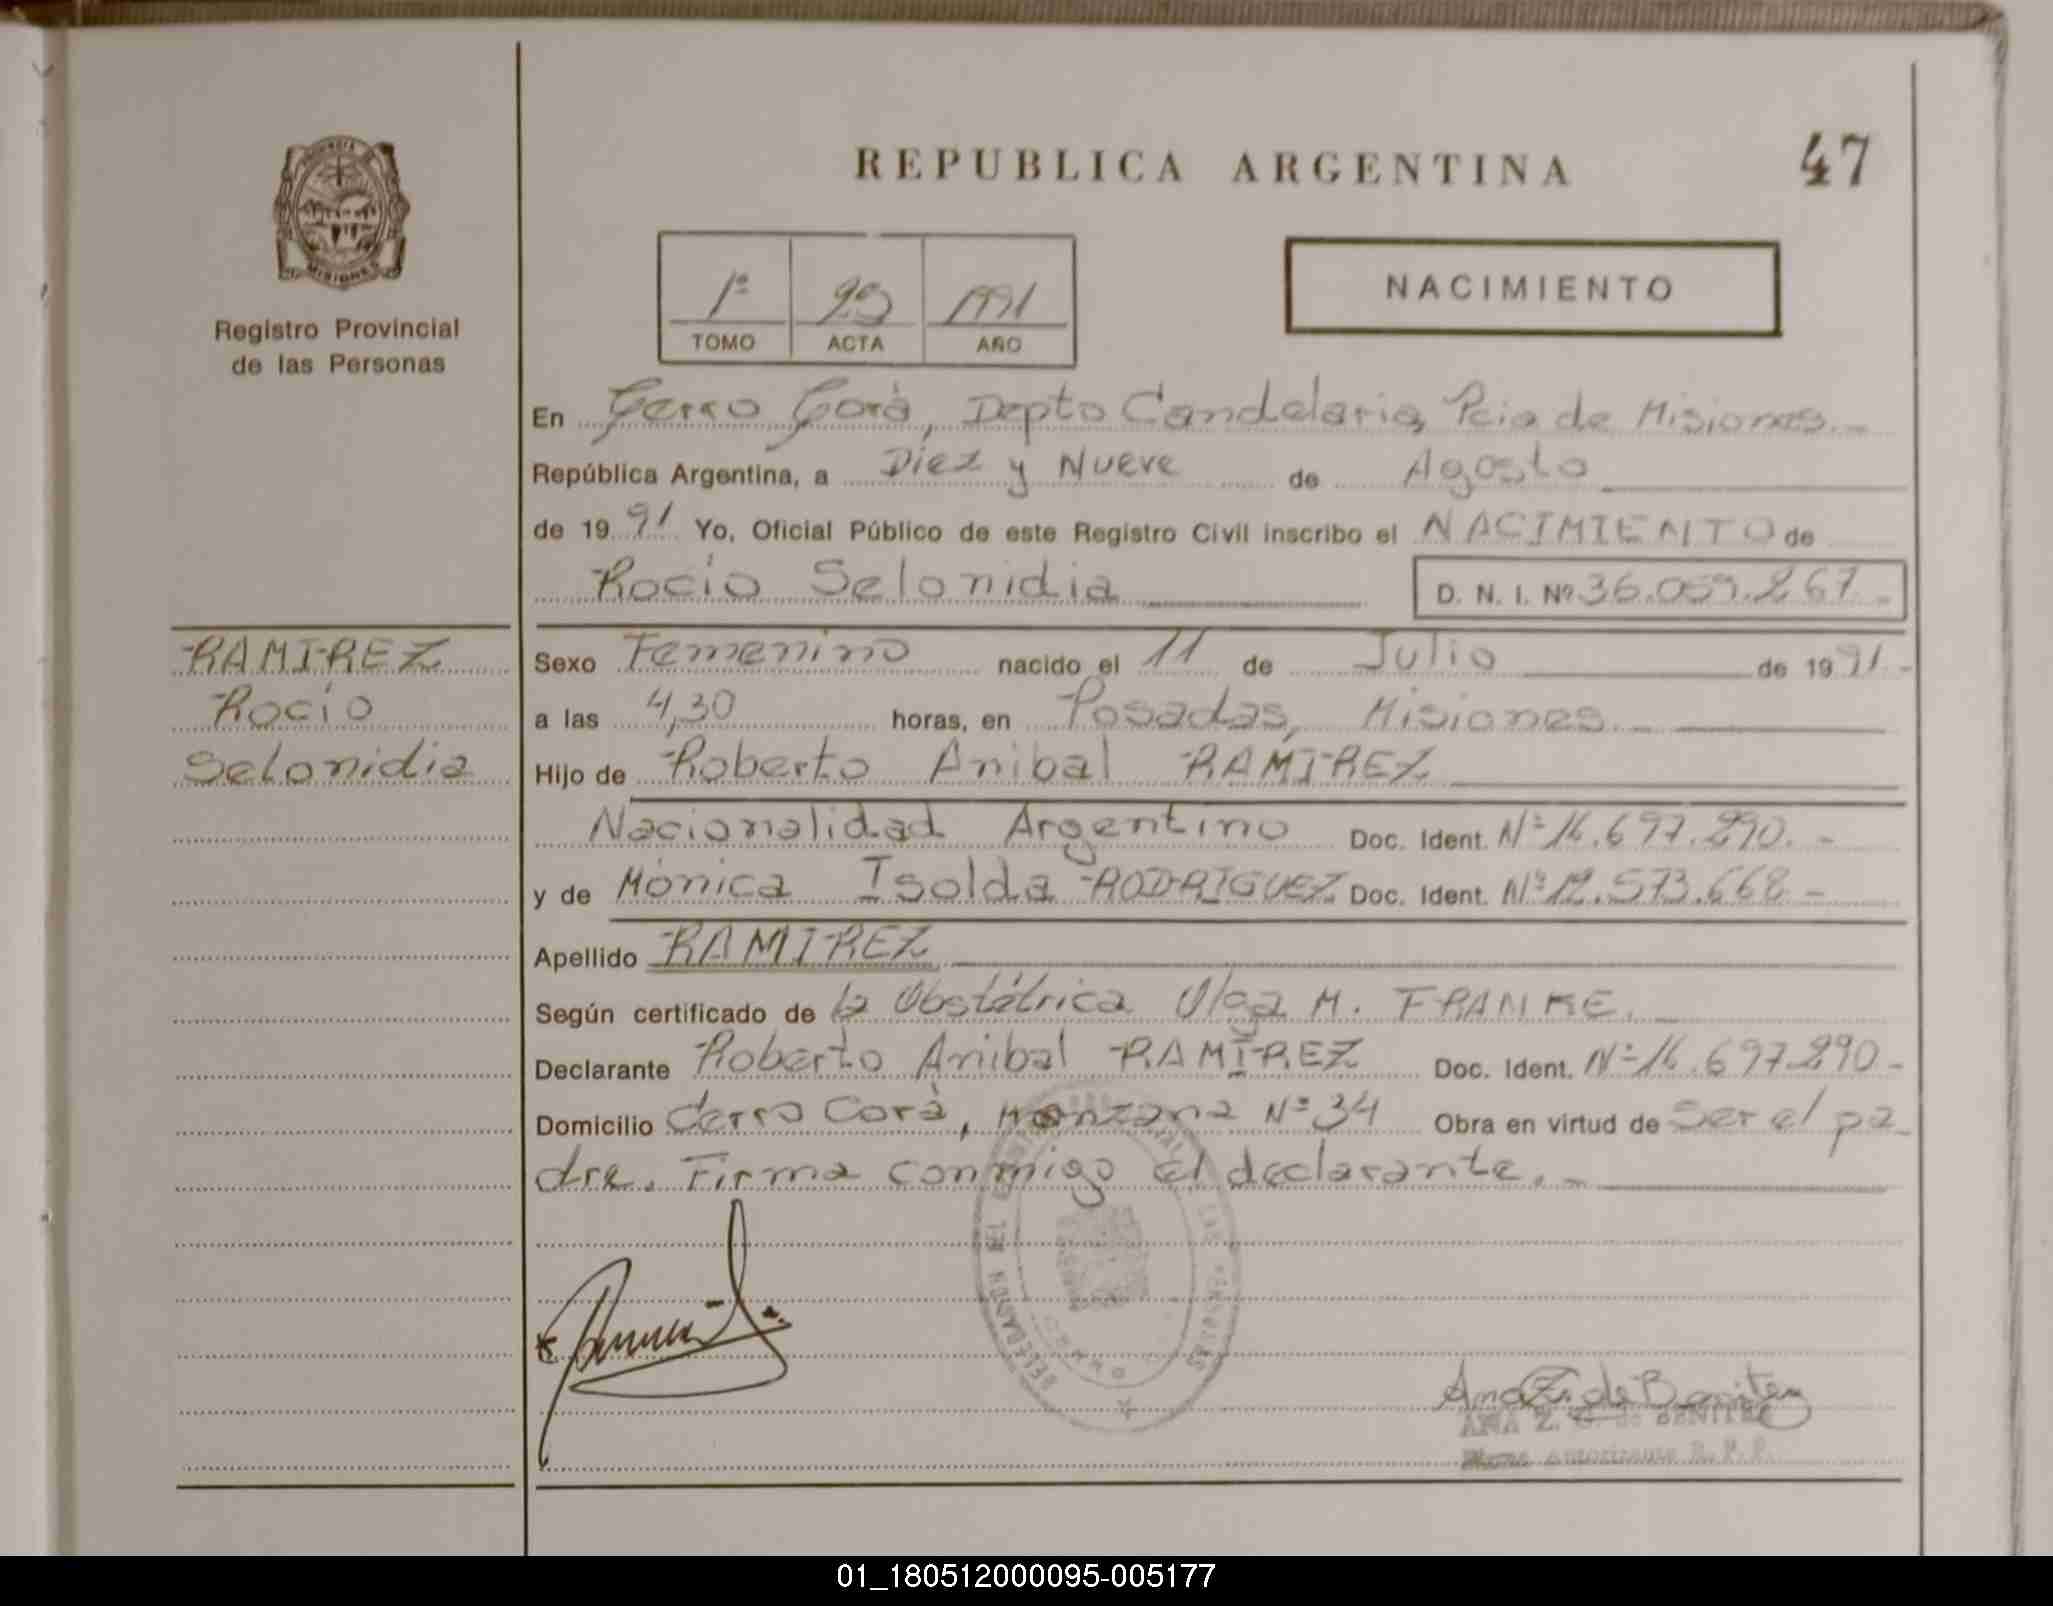 REPUBLICA ARGENTINA
47
PROVINCIA DE
MISIONES
Registro Provincial
de las Personas
1º
TOMO
ACTA
1991
AÑO
NACIMIENTO
En Cerro Corá, Depto Candelaria, Pcia de Misiones.-
República Argentina, a Diez y Nueve de Agosto
de 1991 Yo, Oficial Público de este Registro Civil inscribo el NACIMIENTO de
Rocío Selonidia
D. N. I. Nº 36.059.267.-
RAMIREZ
Rocío
Selonidia
Sexo Femenino nacido el 11 de Julio de 1991.-
a las 4,30 horas, en Posadas, Misiones.
Hijo de Roberto Anibal RAMIREZ
Nacionalidad Argentino Doc. Ident. Nº 16.697.290.-
y de Mónica Isolda RODRIGUEZ Doc. Ident. Nº 12.573.668-
Apellido RAMIREZ
Según certificado de la Obstétrica Olga M. FRANKE.
Declarante Roberto Anibal RAMIREZ Doc. Ident. Nº 16.697.290-
Domicilio Cerro Corá, Manzana Nº 34 Obra en virtud de Ser el pa-
dre. Firma conmigo el declarante.-
Ana Z. de Benitez
ANA Z. de BENITEZ
Autorizante R. P. P.
01_180512000095-005177